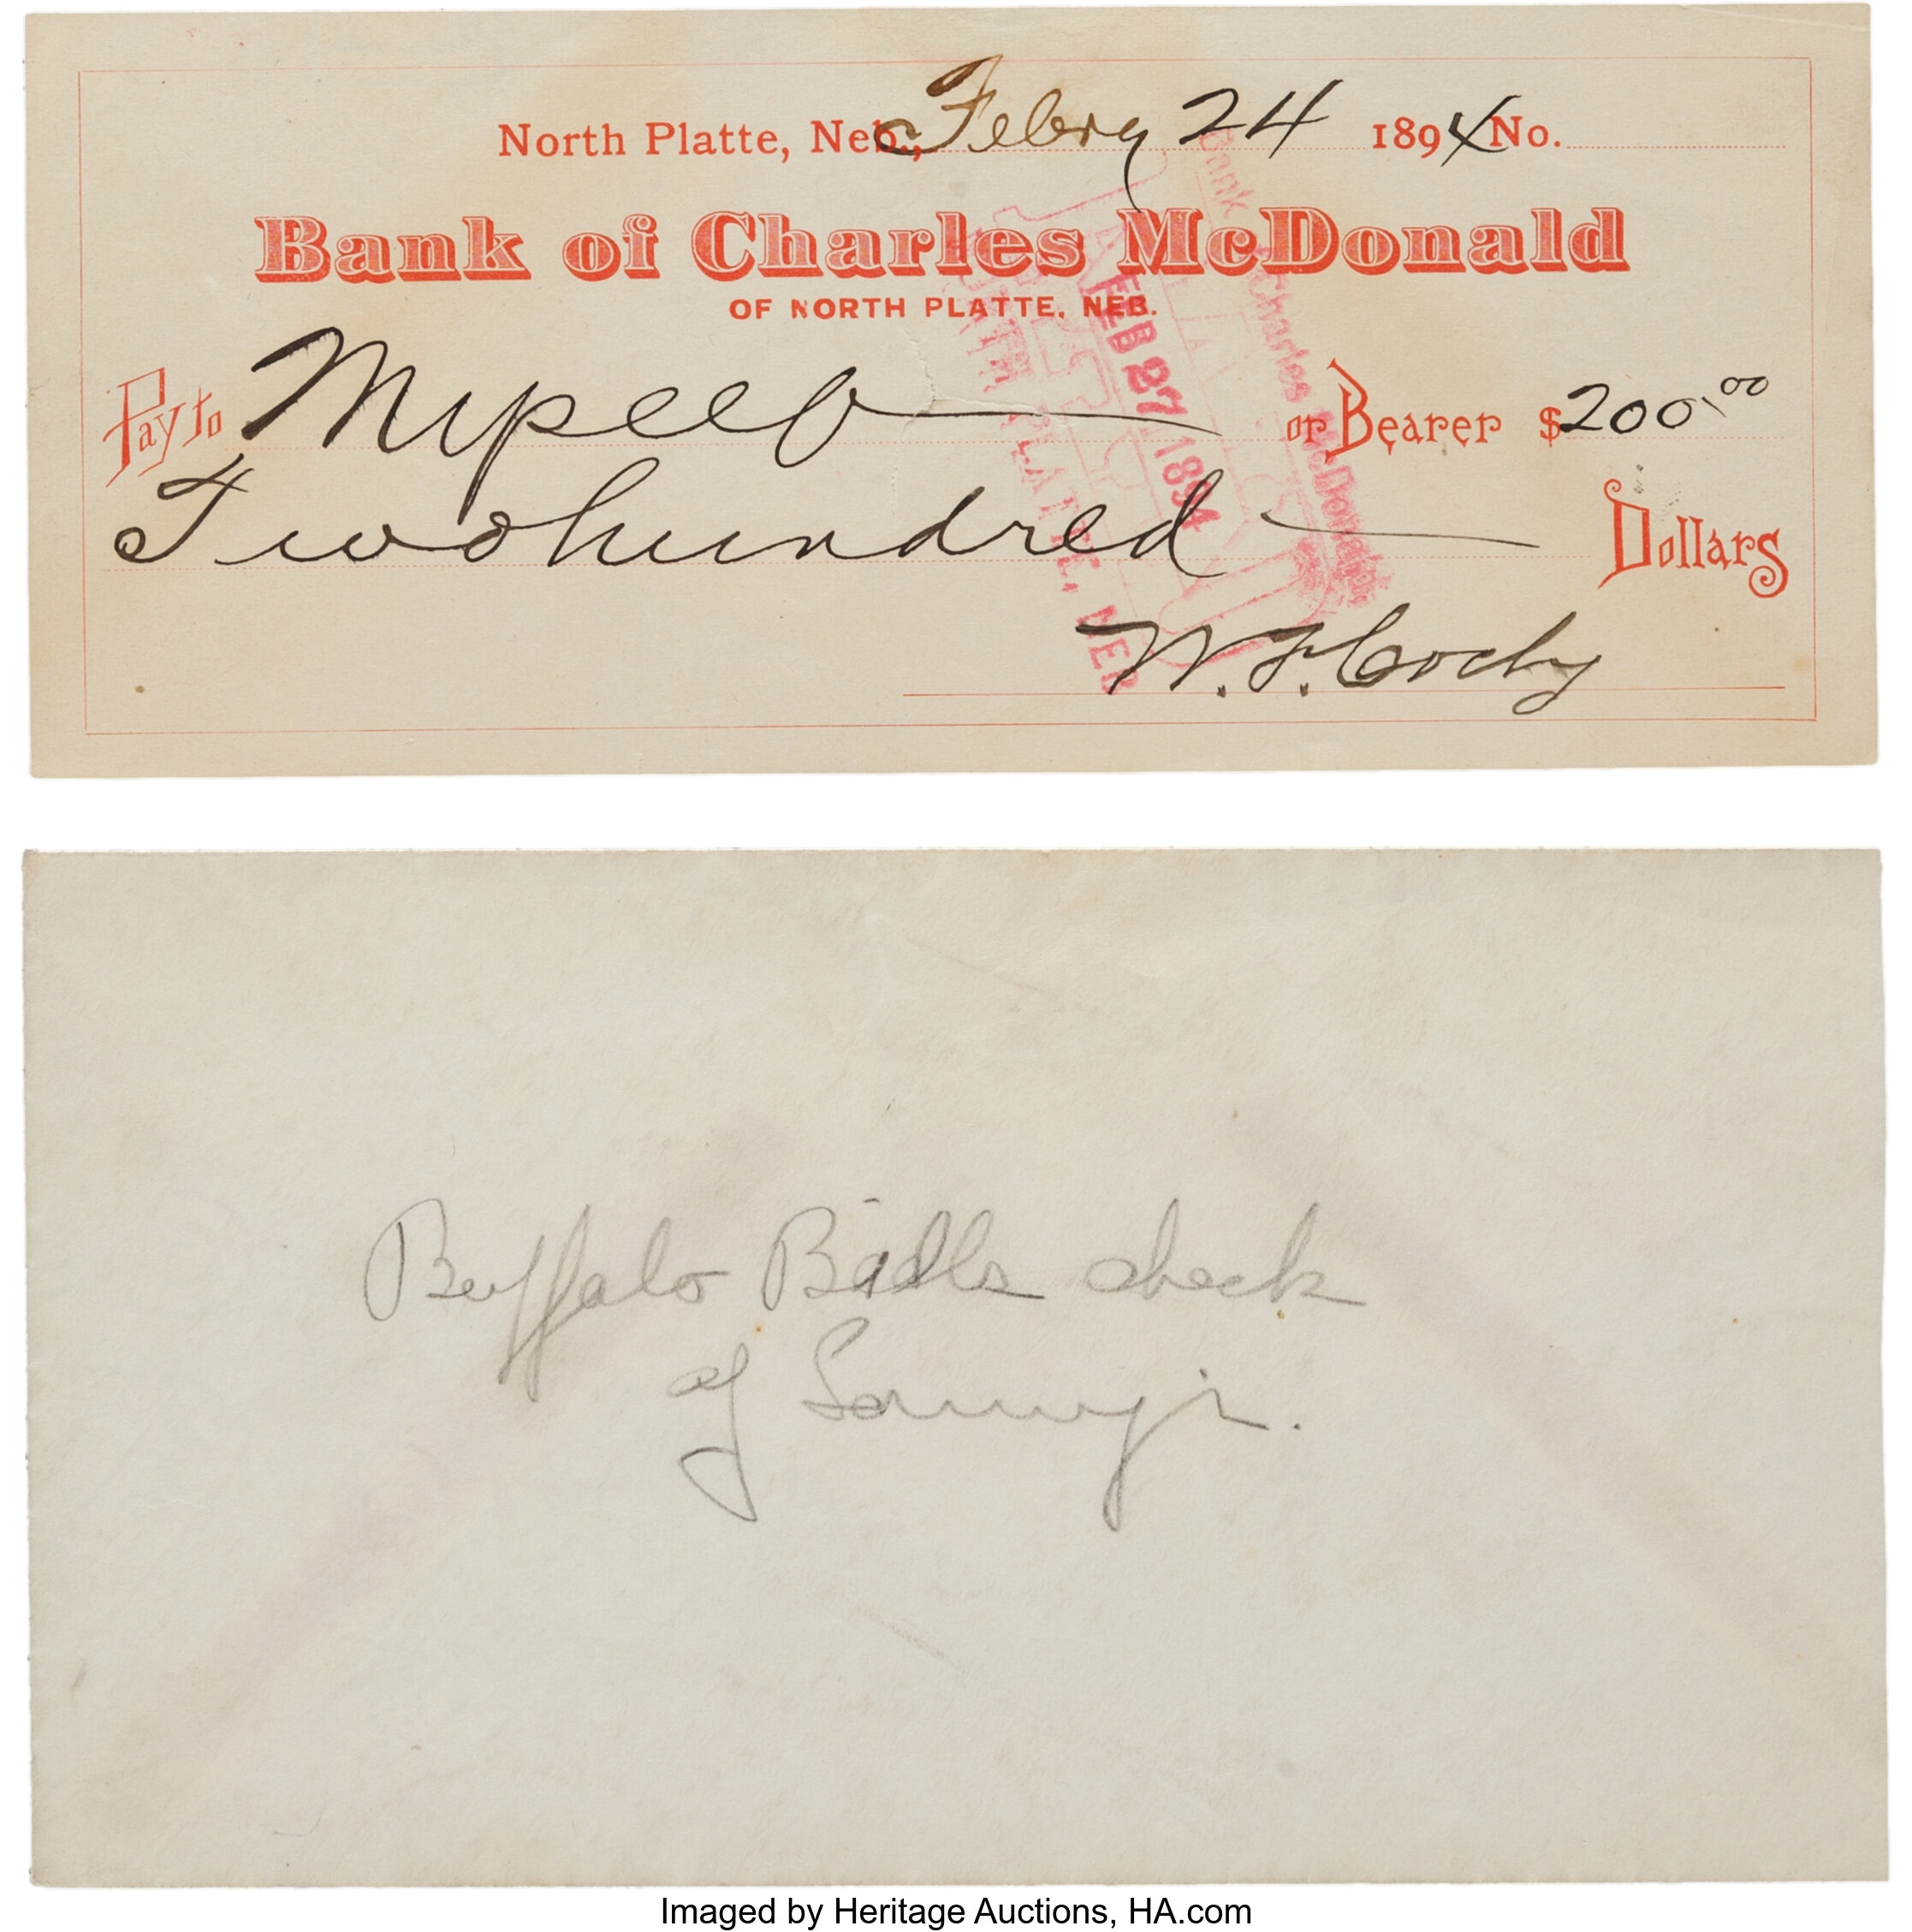 North Platte, Neb., Febry 24 1894 No.
Bank of Charles McDonald
OF NORTH PLATTE, NEB.
Pay to Myself or Bearer $200.00
Two hundred Dollars
W. F. Cody
Bank Charles McDonald
FEB 27 1894
NORTH PLATTE, NEB
Buffalo Bills check
of
Imaged by Heritage Auctions, HA.com